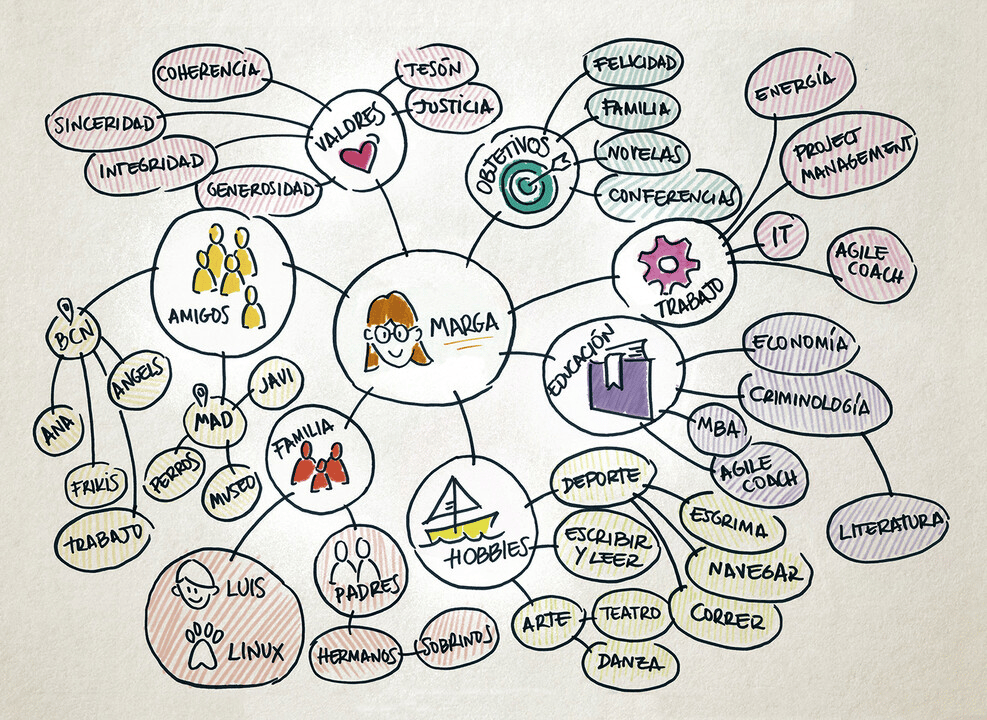 COHERENCIA
SINCERIDAD
INTEGRIDAD
GENEROSIDAD
TESÓN
JUSTICIA
VALORES
FELICIDAD
FAMILIA
NOVELAS
CONFERENCIAS
OBJETIVOS
ENERGÍA
PROJECT
MANAGEMENT
IT
AGILE
COACH
TRABAJO
AMIGOS
MARGA
BCN
ANGELS
ANA
FRIKIS
TRABAJO
MAD
JAVI
PERROS
MUSEO
EDUCACIÓN
ECONOMÍA
CRIMINOLOGÍA
MBA
AGILE
COACH
LITERATURA
FAMILIA
LUIS
LINUX
PADRES
HERMANOS
SOBRINOS
HOBBIES
DEPORTE
ESGRIMA
NAVEGAR
CORRER
ESCRIBIR
Y LEER
ARTE
TEATRO
DANZA